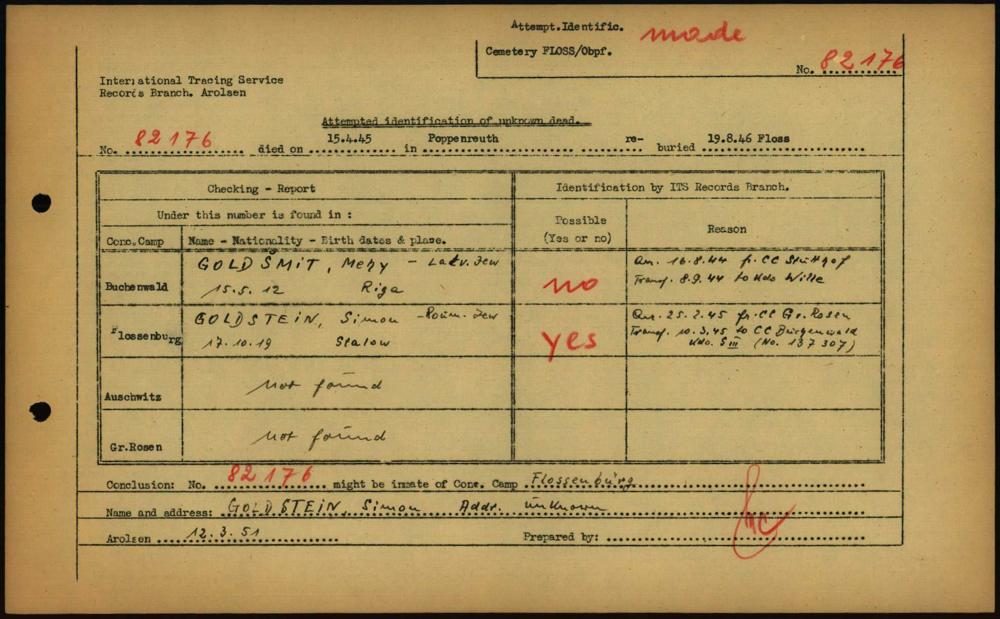 Attempt.Identific. made
Cemetery FLOSS/Obpf.
No. 82176
International Tracing Service
Records Branch. Arolsen
Attempted identification of unknown dead.
No. 82176 died on 15.4.45 in Poppenreuth re- buried 19.8.46 Floss
Checking - Report
Identification by ITS Records Branch.
Under this number is found in :
Possible (Yes or no)
Reason
Conc.Camp
Name - Nationality - Birth dates & place.
Buchenwald
GOLDSMIT, Mehy - Latv. Jew
15.5.12 Riga
no
Arr. 16.8.44 fr. CC Stutthof
Transf. 8.9.44 to Kdo Wille
Flossenburg
GOLDSTEIN, Simon - Roum. Jew
17.10.19 Slalow
yes
Arr. 25.2.45 fr. CC Gr. Rosen
Transf. 10.3.45 to CC Burgenwald
Kdo. S III (No. 137307)
Auschwitz
not found
Gr.Rosen
not found
Conclusion: No. 82176 might be inmate of Conc. Camp Flossenbürg
Name and address: GOLDSTEIN, Simon Addr. unknown
Arolsen 12.3.51
Prepared by: